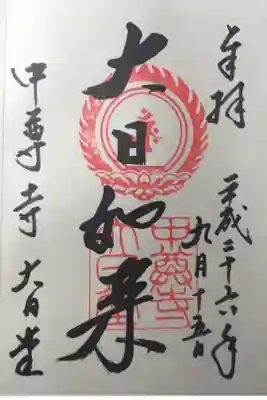 奉拝
平成二十六年
九月十五日
大日如来
中尊寺 大日堂
中尊寺
大日堂